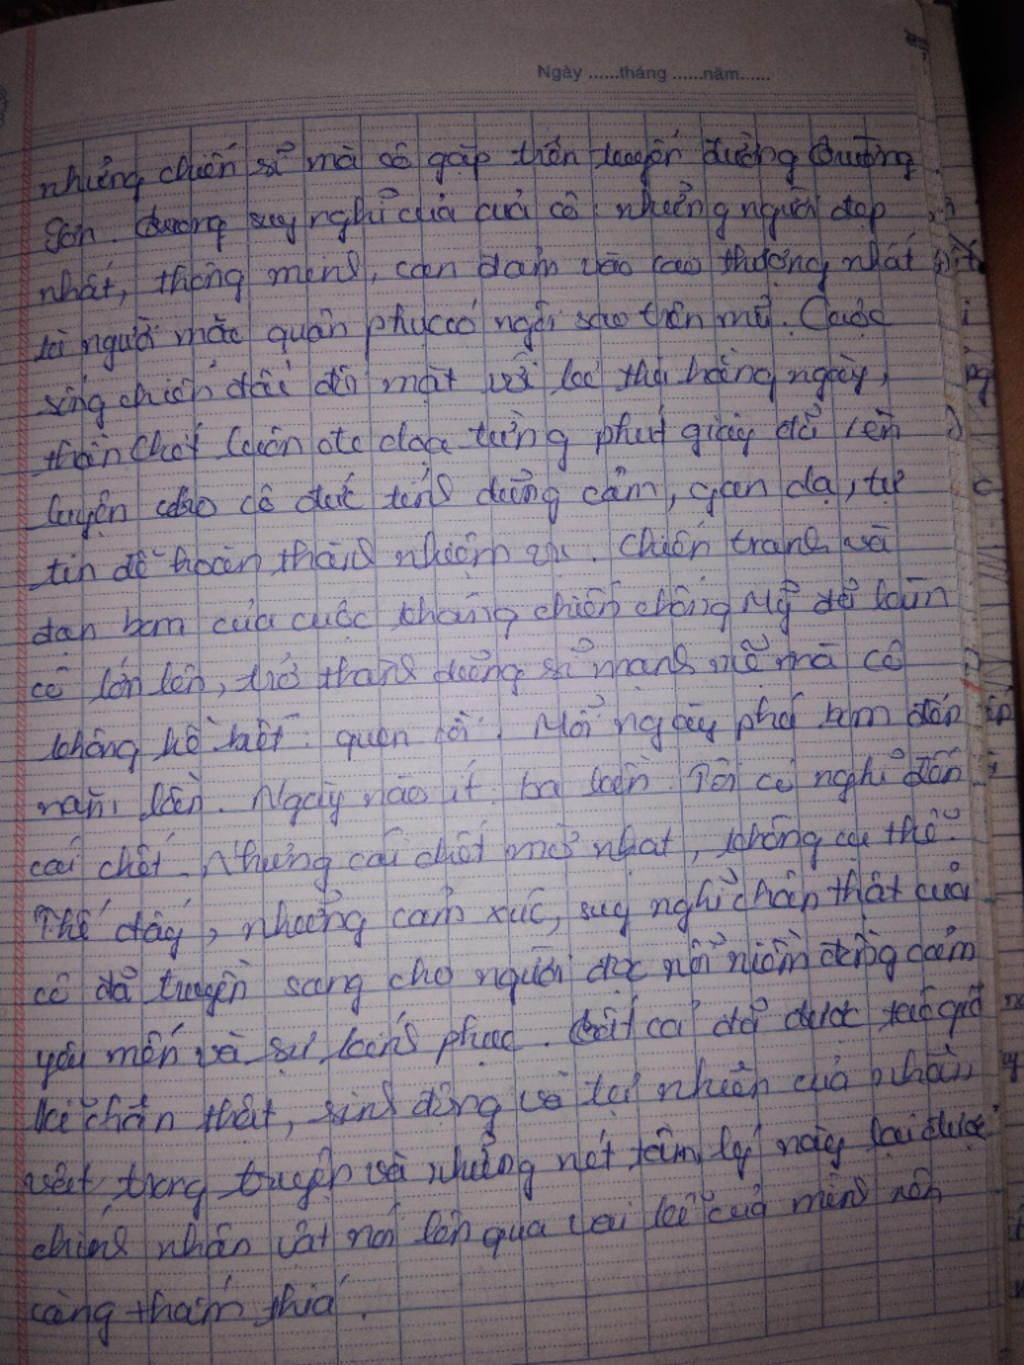 Ngày ......tháng ......năm......
những chiến sĩ mà cô gặp trên tuyến đường Trường
Sơn. trong suy nghĩ của cô: những người đẹp
nhất, thông minh, can đảm và cao thượng nhất
là người mặc quân phục có ngôi sao trên mũ. Cuộc
sống chiến đấu đối mặt với hàng ngày,
thần chết luôn đe dọa từng phút giây đã rèn
luyện cho cô đức tính dũng cảm, gan dạ, tự
tin để hoàn thành nhiệm vụ. Chiến tranh và
đạn bom của cuộc kháng chiến chống Mỹ đã làm
cô lớn lên, trở thành dũng sĩ mạnh mẽ mà cô
không hề biết: quen rồi. Mỗi ngày phá bom đến
năm lần. Ngày nào ít: ba lần. Tôi có nghĩ đến
cái chết. Nhưng cái chết mờ nhạt, không cụ thể.
Thế đấy, những cảm xúc, suy nghĩ chân thật của
cô đã truyền sang cho người đọc nỗi niềm đồng cảm
yêu mến và sự kính phục. tất cả đã được tác giả
kể chân thật, sinh động và tự nhiên của nhân
vật trong truyện và những nét tâm lý này lại được
chính nhân vật nói lên qua lời kể của mình nên
càng thấm thía.